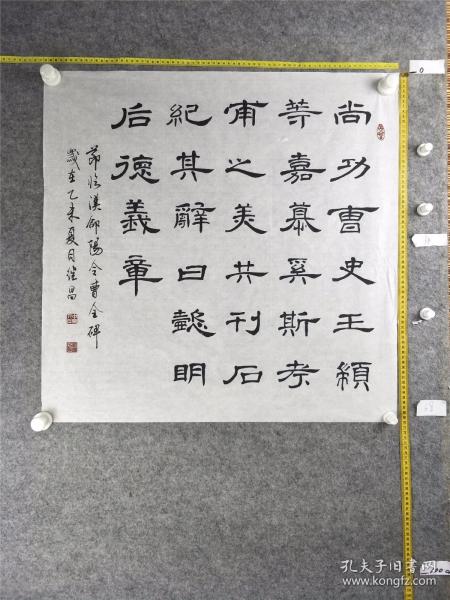 尚功曹史王顓
等嘉慕奚斯考
甫之美共刊石
紀其辭曰懿明
后德義章
節临漢郃陽令曹全碑
歲在乙未夏月继昌
孔夫子旧书网
www.kongfz.com